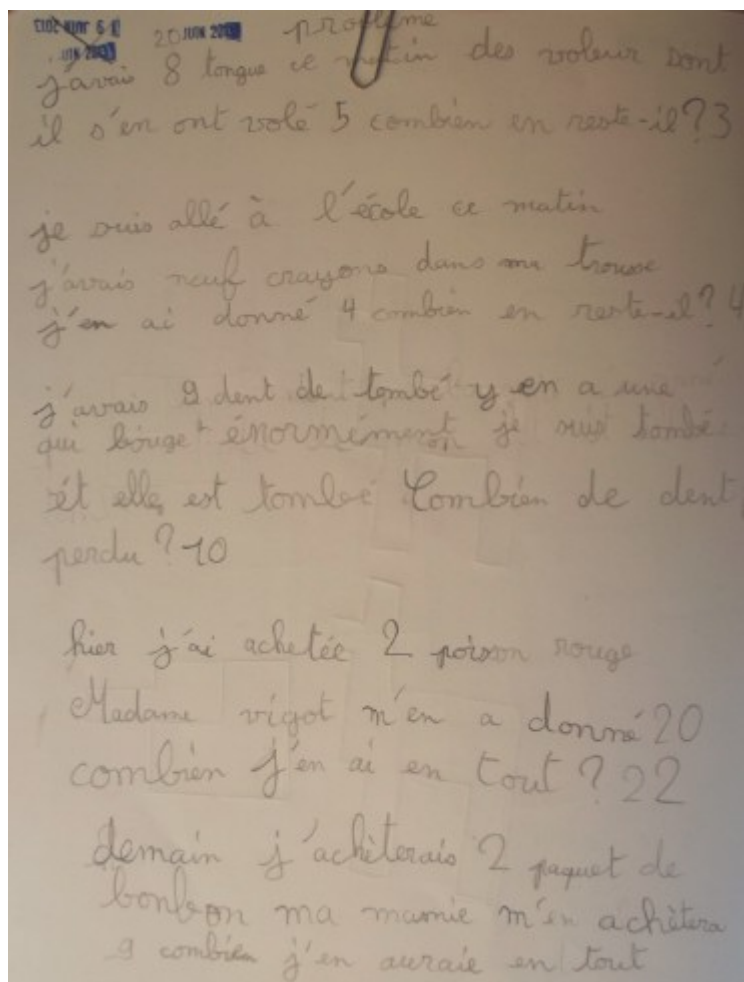 20 JUIN problème
j'avais 8 tongue ce matin des voleur sont
il s'en ont volé 5 combien en reste-il? 3
je suis allé à l'école ce matin
j'avais neuf crayons dans ma trousse
j'en ai donné 4 combien en reste-il? 4
j'avais 9 dent de tombé y en a une
qui bouget énormément je suis tombé
ét elle est tombé Combien de dent
perdu? 10
hier j'ai achetée 2 poisson rouge
Madame vigot m'en a donné 20
combien j'en ai en tout? 22
demain j'achèterais 2 paquet de
bonbon ma mamie m'en achètera
9 combien j'en auraie en tout